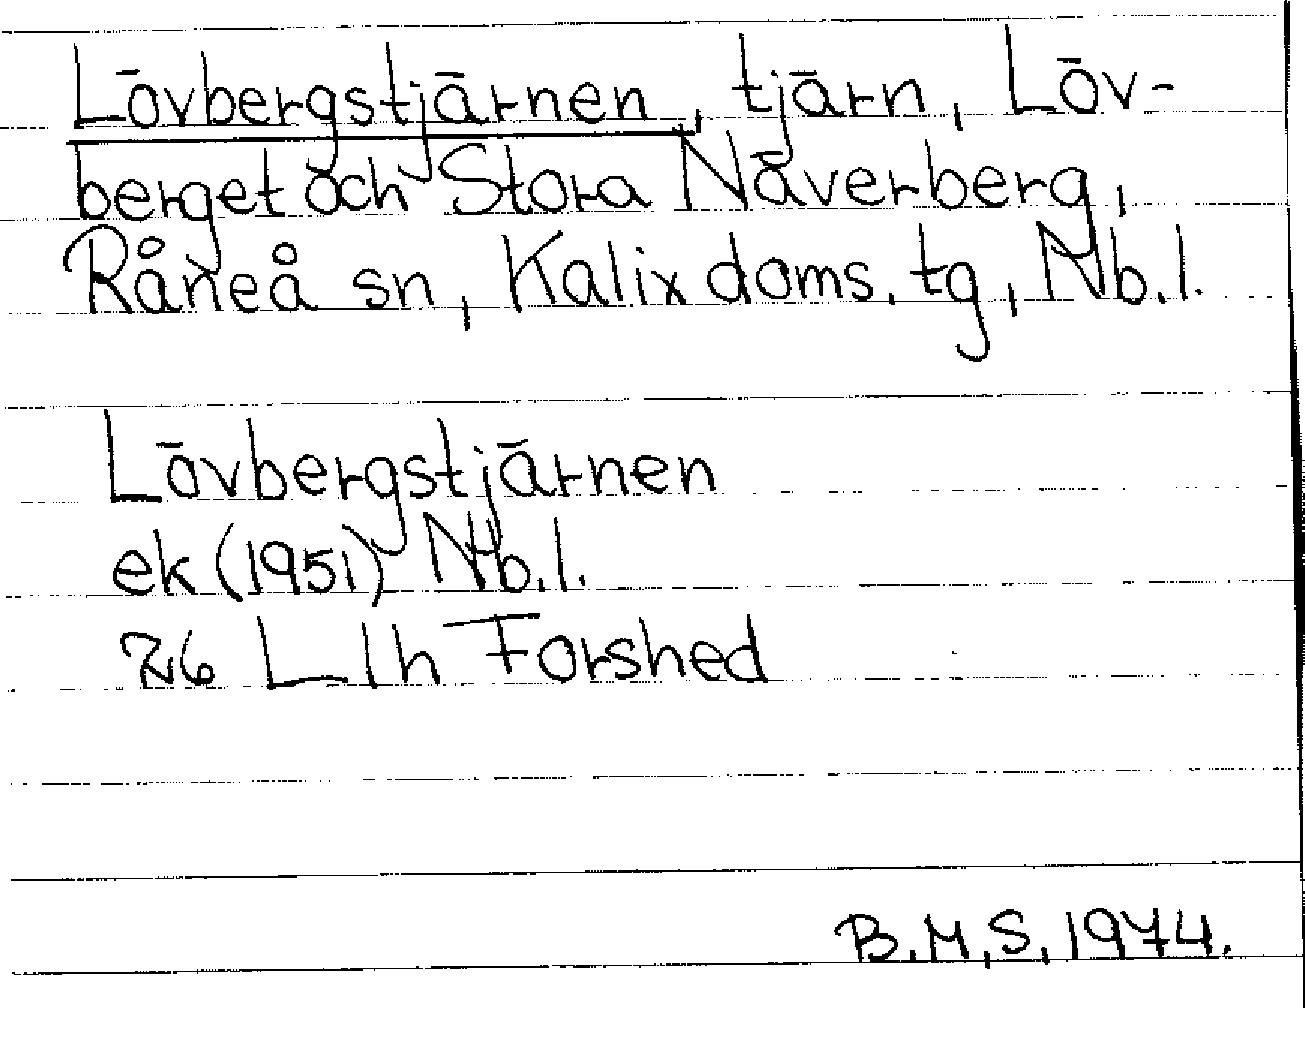 Lövbergstjärnen, tjärn, Löv-
berget och Stora Näverberg,
Råneå sn, Kalix doms. tg, Nb.l.
Lövbergstjärnen
ek (1951) Nb.l.
26 L 1h Forshed
B.M.S. 1974.